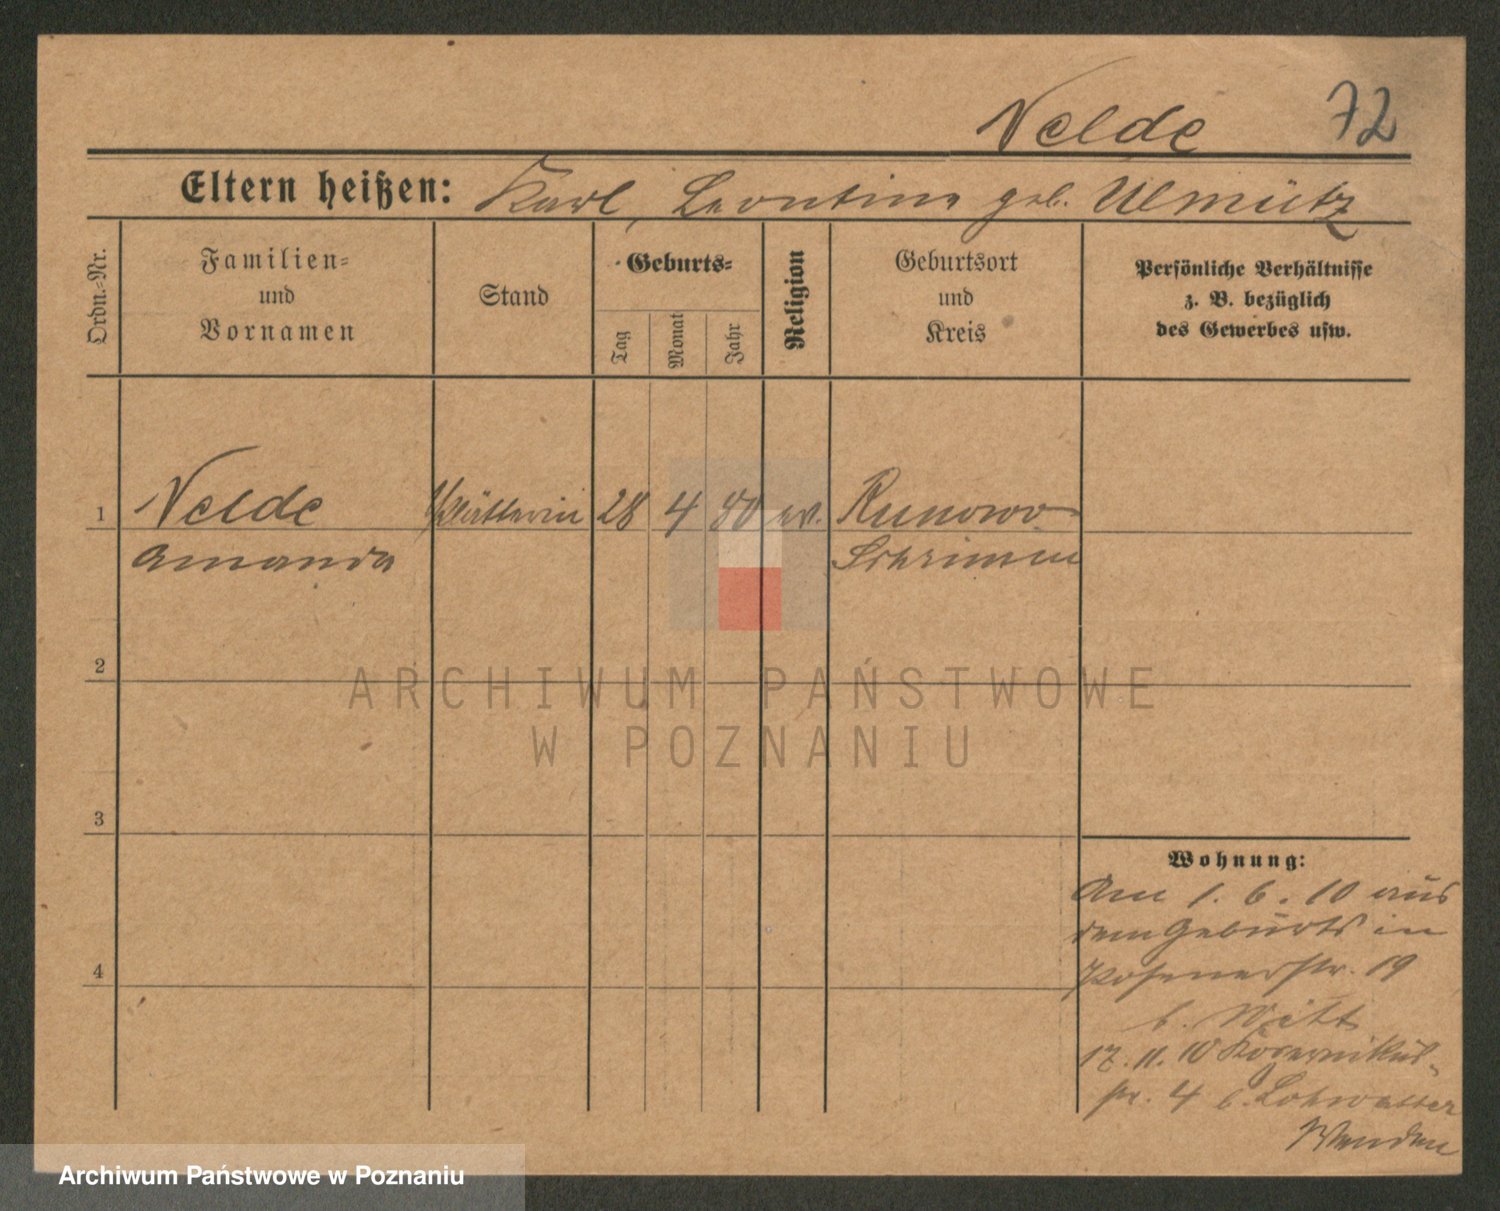 Nelde 72
Eltern heißen: Karl, Leontine geb. Ulmütz
Ordn.-Nr.
Familien-
und
Vornamen
Stand
Geburts-
Tag
Monat
Jahr
Religion
Geburtsort
und
Kreis
Persönliche Verhältnisse
z. B. bezüglich
des Gewerbes usw.
1 Nelde Plätterin 28 4 80 ev. Runowo
Amanda Schrimm
2
ARCHIWUM PAŃSTWOWE
W POZNANIU
3
Wohnung:
Am 1. 6. 10 aus
dem Geburts in
Posenerstr. 19
b. Witt
17. 11. 10 Kopernikus-
str. 4 b.
4
Archiwum Państwowe w Poznaniu